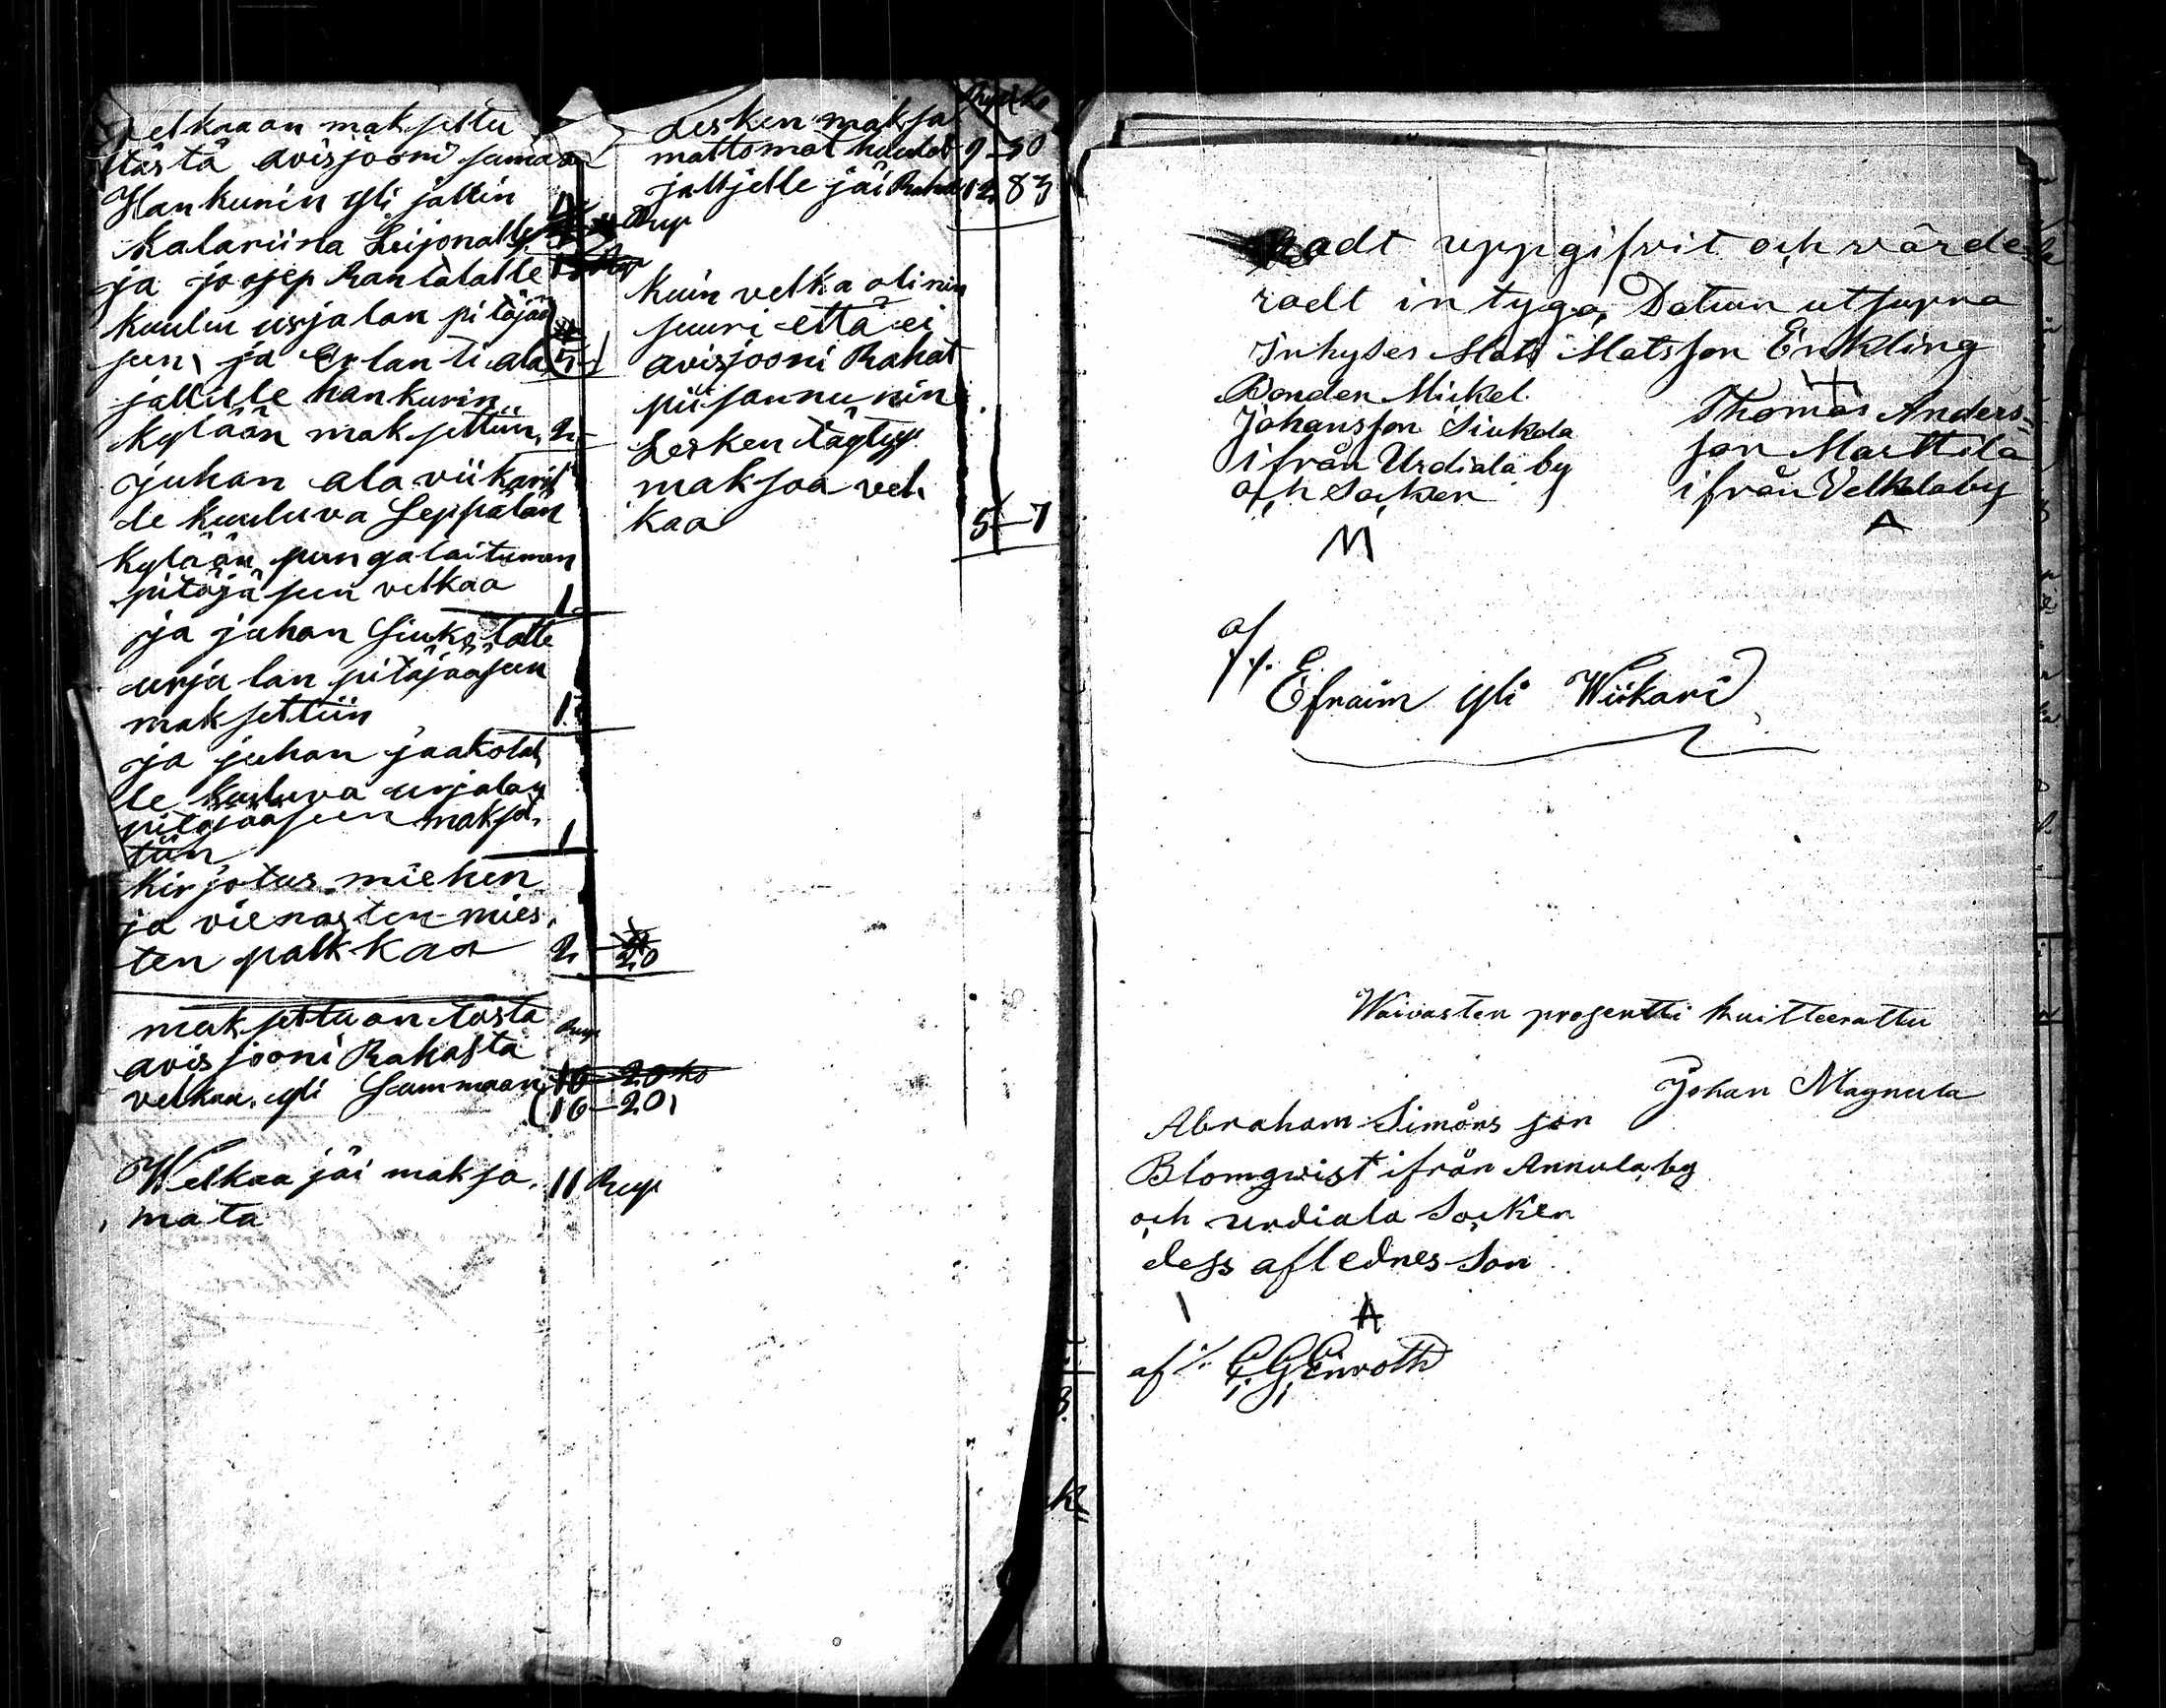 velkaa on maksettu
tästä avisjooni sumaa
Hankurin yli jallin
katariina Leijonalle
ja joosep Rantalalle
kuulu urjalan pitäjää
seen, ja Erlanti ala 5
jallille hankurin
kylään maksettiin, 2
juhan ala viikaril
le kuuluva Seppälän
kylään pungalaitumen
pitäjä seen velkaa 1
ja juhan Siukolalle
urjalan pitäjääseen
maksettiin 1
ja juhan jaakolal
le kuuluva urjalan
pitäjääseen makset,
tiin 1
kirjotus miehen
ja vierasten mies,
ten palkkaa 2 20
maksettu on tästä Rup
avisjooni Rahasta
velkaa yli Summaan 16 20 ko
(16–20,
Welkaa jäi maksa, 11 Rup
mata
Lesken maksa
mattomat huudot 9 50
jälljelle jäi Raha 12 83
Rup
kuin velka oli niin
suuri että ei
avisjooni Rahat
piisannu nin
Lesken täytyy
maksaa vel,
kaa 5–7
radt uppgifvit och värde
radt intyga, Datum utsupra
Inhyses Mats Matsson Enkling
Bonden Mickel
Johansson Siukola
ifrån Urdiala by
och Socken
M
Thomas Anders=
son Marttila
ifrån Velkala by
A
af
Efraim yli Wiikari
Waivasten prosentti kuitteerattu
Johan Magnula
Abraham Simons son
Blomqwist ifrån Annula by
och urdiala Socken
dess aflednes Son
A
af G G Enroth